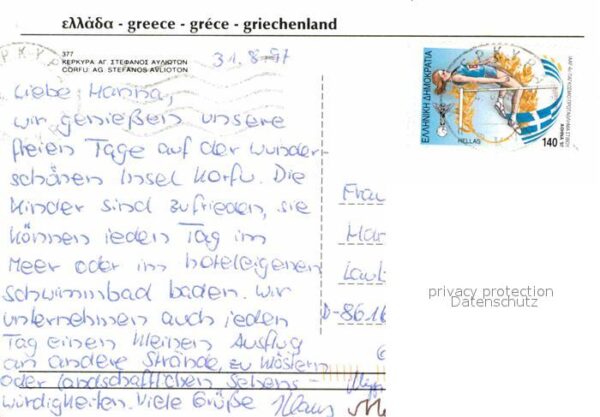 ελλάδα - greece - gréce - griechenland
377
ΚΕΡΚΥΡΑ ΑΓ. ΣΤΕΦΑΝΟΣ ΑΥΛΙΟΤΩΝ
CORFU AG. STEFANOS-AVLIOTON
31.8.97
ΕΛΛΗΝΙΚΗ ΔΗΜΟΚΡΑΤΙΑ
HELLAS
140
Liebe Hanna,
wir genießen unsere
freien Tage auf der wunder-
schönen Insel Korfu. Die
Kinder sind zufrieden, sie
können jeden Tag im
Meer oder im hoteleigenen
Schwimmbad baden. Wir
unternehmen auch jeden
Tag einen kleinen Ausflug
an andere Strände, zu Klöstern
oder landschaftlichen Sehens-
würdigkeiten. Viele Grüße Klaus
Frau
D-8616
privacy protection
Datenschutz